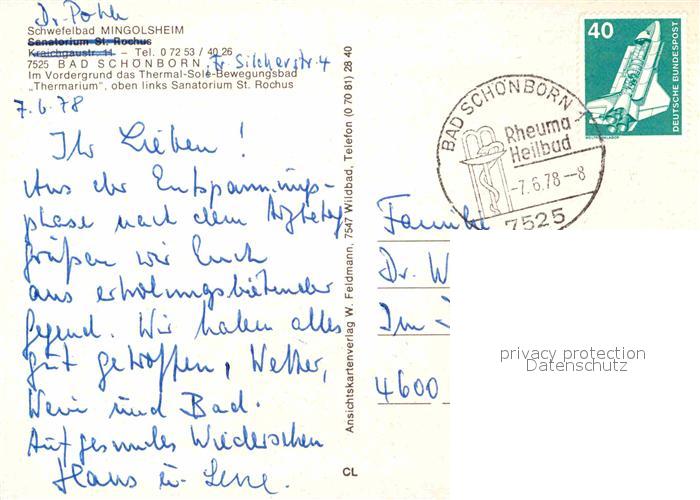 Dr. Pohle
Schwefelbad MINGOLSHEIM
Sanatorium St. Rochus
Kraichgaustr. 11 – Tel. 0 72 53 / 40 26
7525 BAD SCHÖNBORN, Fr. Silcherstr. 4
Im Vordergrund das Thermal-Sole-Bewegungsbad
„Thermarium", oben links Sanatorium St. Rochus
7.6.78
Ihr Lieben!
Aus der Entspannungs-
phase nach dem
grüßen wir Euch
aus erholungsbietender
Gegend. Wir haben alles
gut getroffen, Wetter,
Wein und Bad.
Auf gesundes Wiedersehen
Hans u. Lene.
Ansichtskartenverlag W. Feldmann, 7547 Wildbad, Telefon (0 70 81) 28 40
CL
40
DEUTSCHE BUNDESPOST
BAD SCHÖNBORN 1
Rheuma
Heilbad
-7.6.78-8
7525
Familie
Dr. W
Im
4600
privacy protection
Datenschutz